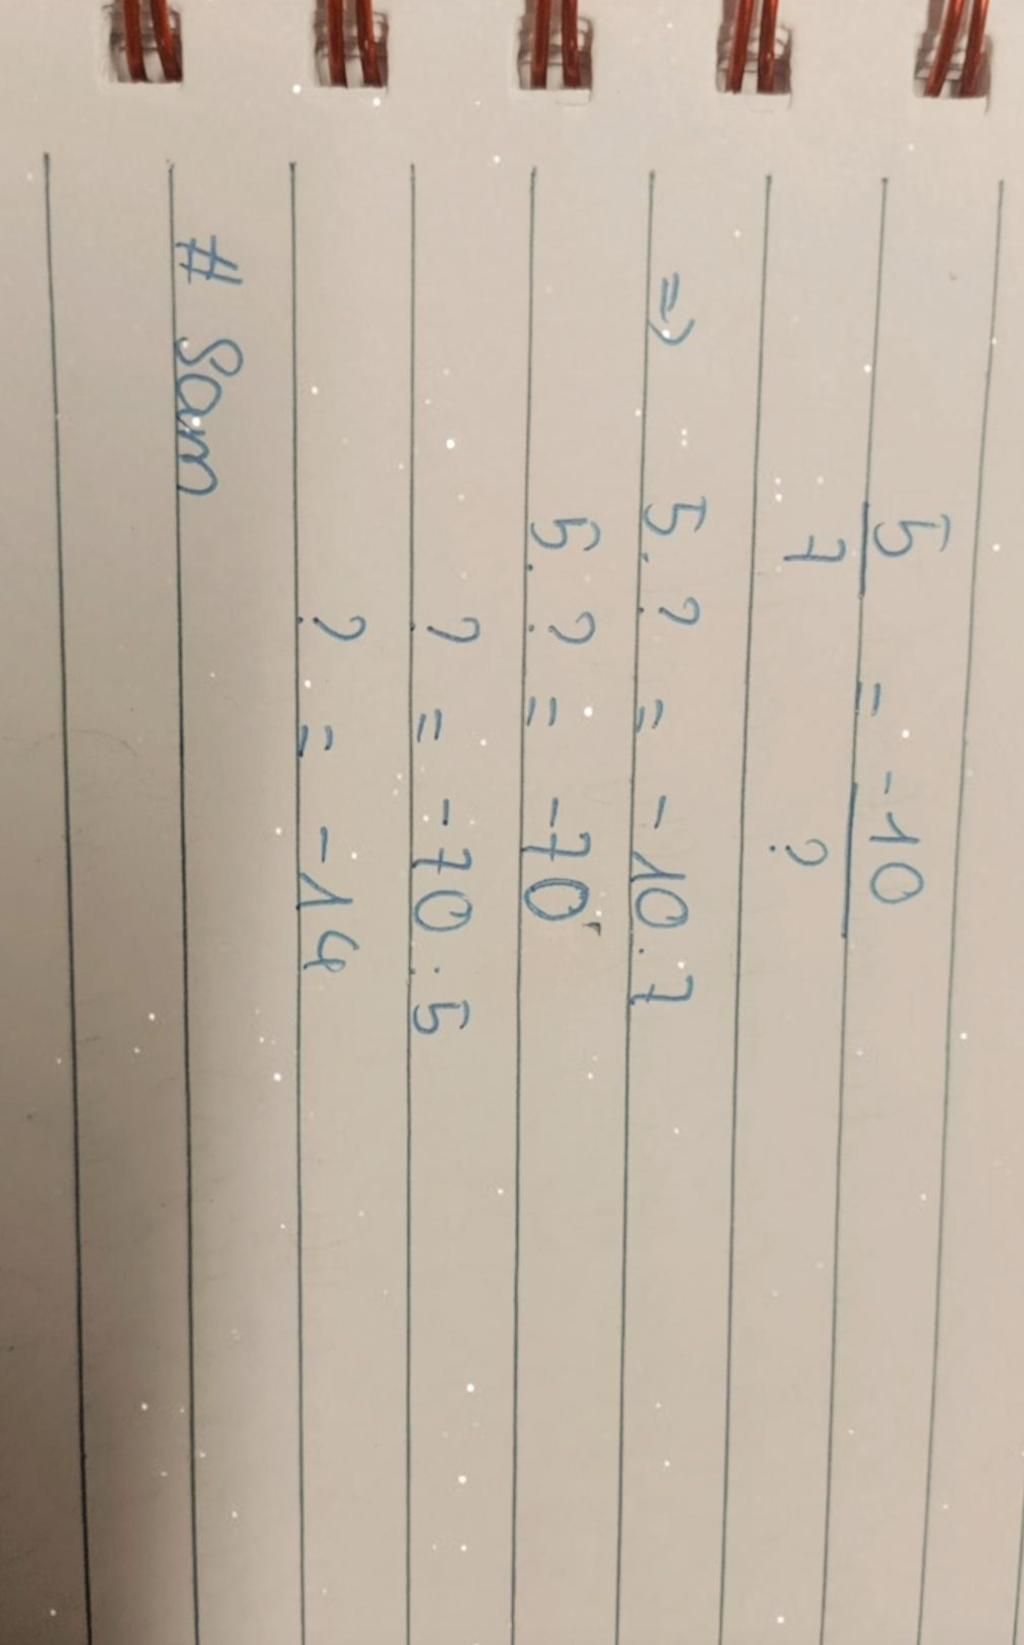 5/7 = -10/?
=> 5.? = -10.7
5.? = -70
? = -70:5
? = -14
# Sam